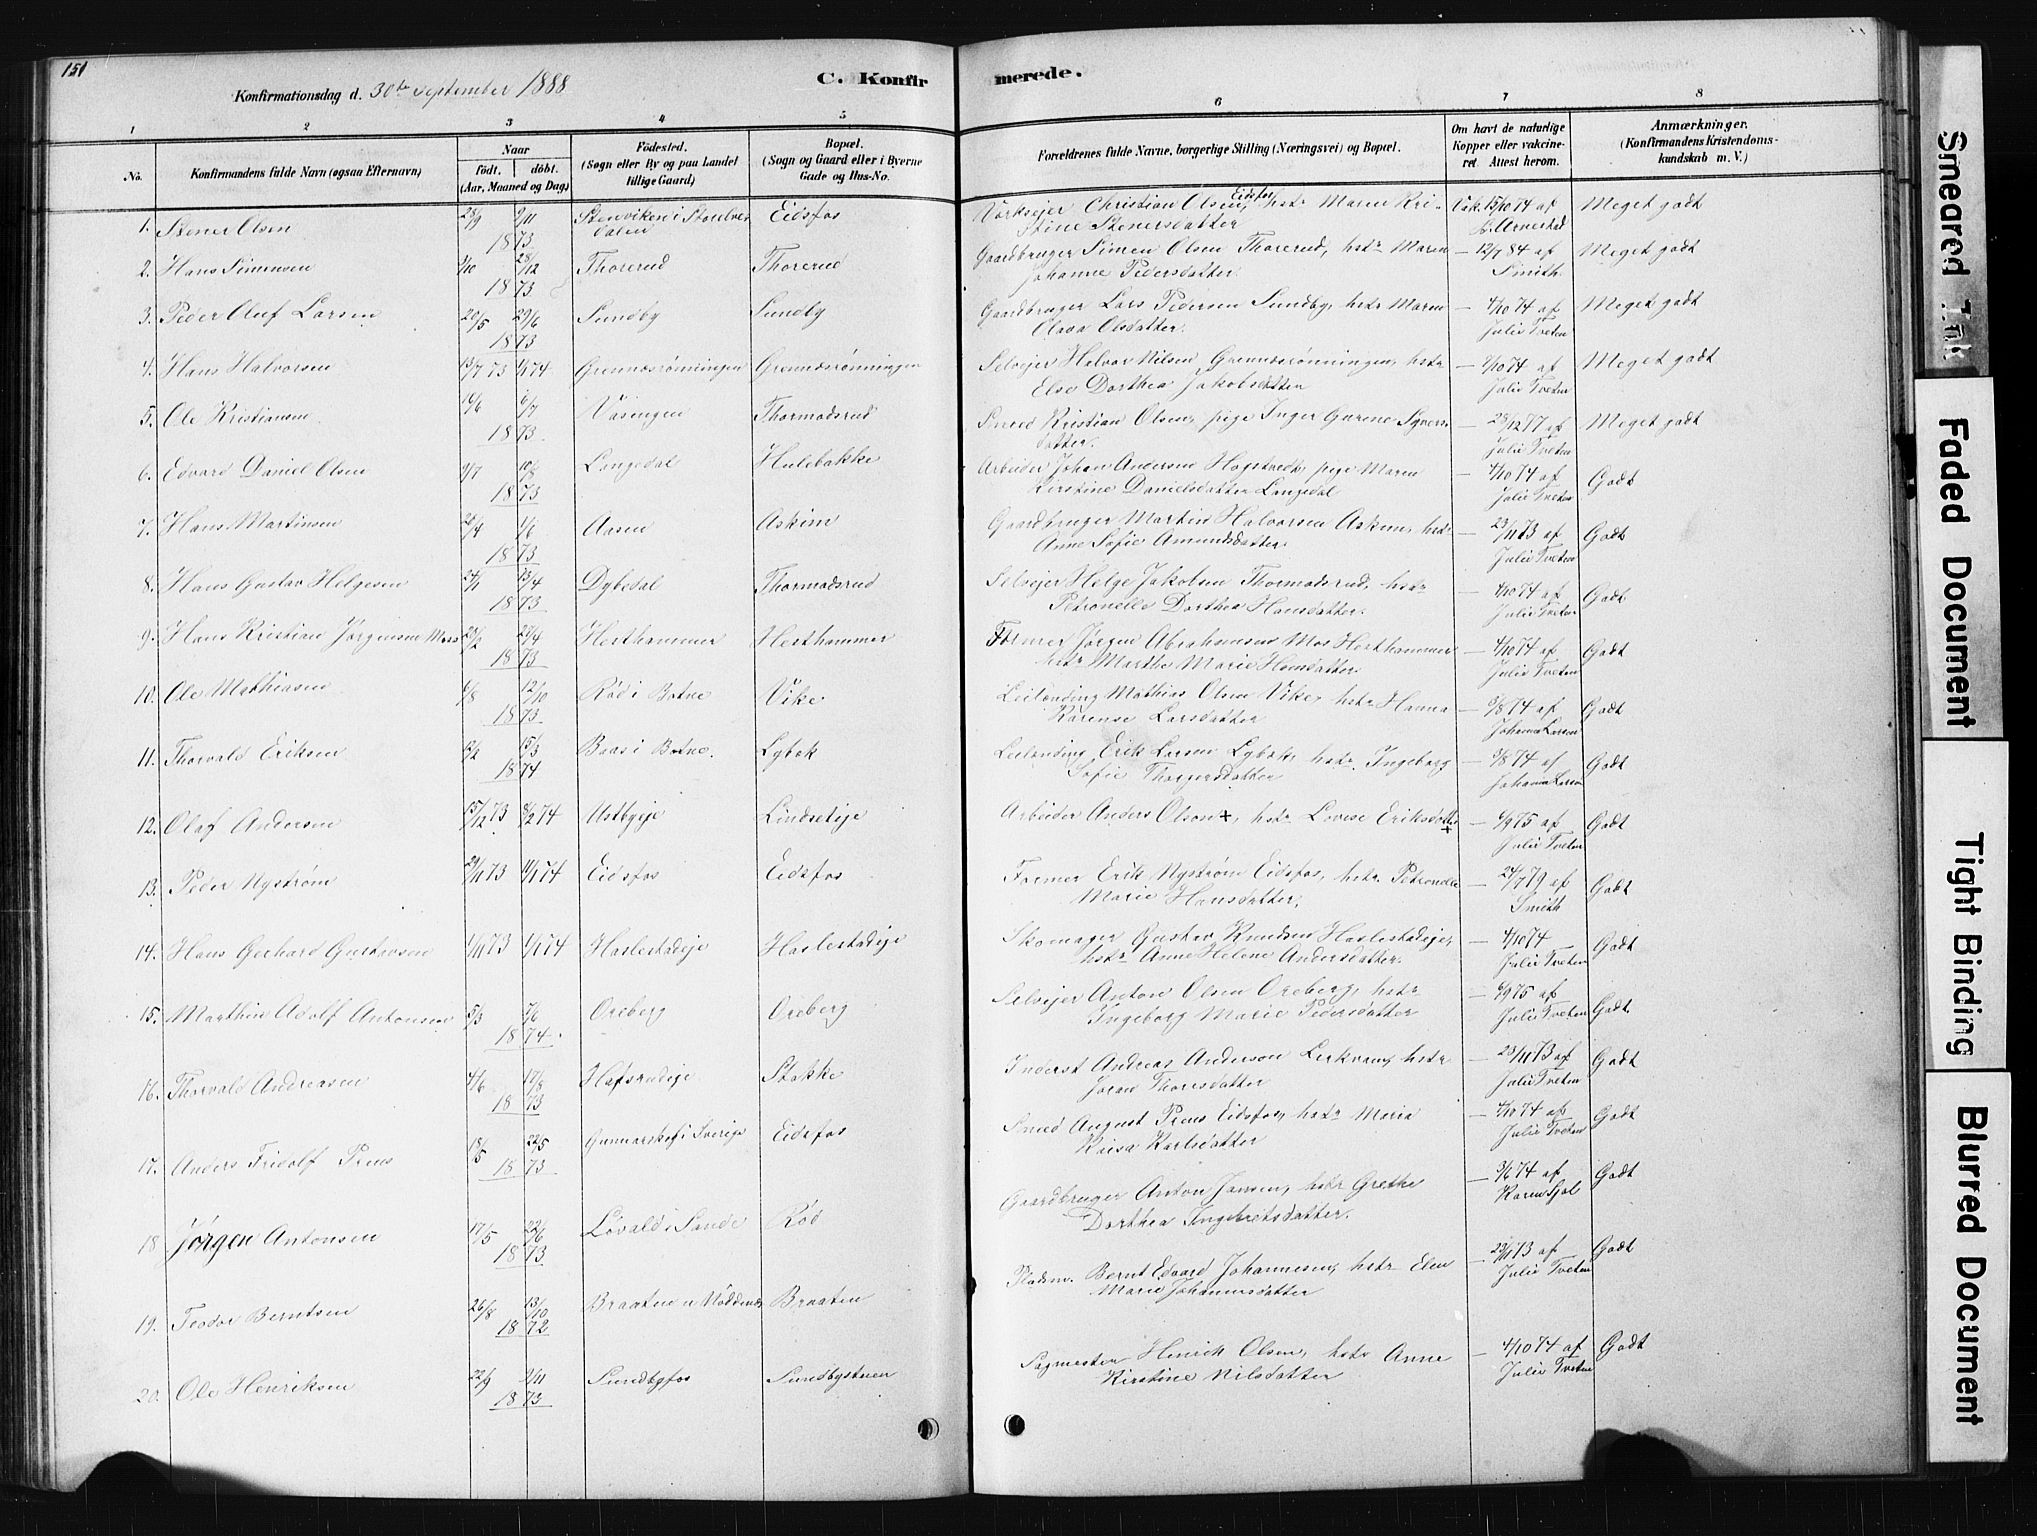 151
Konfirmationsdag d. 30te September 1888
C. Konfirmerede.
1 2 3 4 5 6 7 8
No.
Konfirmandens fulde Navn (ogsaa Efternavn)
Naar
født. døbt.
(Aar, Maaned og Dag)
Fødested.
(Sogn eller By og paa Landet
tillige Gaard)
Bopæl.
(Sogn og Gaard eller i Byerne
Gade og Hus-No.
Forældrenes fulde Navne, borgerlige Stilling (Næringsvei) og Bopæl.
Om havt de naturlige
Kopper eller vakcine-
ret. Attest herom.
Anmærkninger.
(Konfirmandens Kristendoms-
kundskab m. V.)
1. Stener Olsen 28/9 9/11 1873 Eidsfos
Christian Olsen, Eidsfos, hstr Maren Kri-
stine Stenersdatter
Vak. 15/10 74 af
Arnestad
Meget godt
2. Hans Simensen 28/12 1873 Thorerud Thorerud
Gaardbruger Simen Olsen Thorerud, hstr Maren
Johanne Pedersdatter.
— 12/7 84 af
Smith.
Meget godt
3. Peder Oluf Larsen 20/5 29/6 1873 Sundby Sundby
Gaardbruger Lars Pedersen Sundby, hstr Maren
Olava Olsdatter.
— 4/10 74 af
Julie Tveten
Meget godt
4. Hans Halvorsen 13/7 73 Grennesrønningen Grennesrønningen
Selveier Halvor Nilsen Grennesrønningen, hstr
Else Dorthea Jakobsdatter
Julie Tveten
Meget godt
5. Ole Kristiansen 16/6 6/7 1873 Vasengen Thormodsrud
Smed Kristian Olsen, pige Inger Gurine Syvers-
datter.
— 28/12 77 af
Julie Tveten
Meget godt
6. Edvard Daniel Olsen 9/7 10/8 1873 Langedal Hulebakke
Arbeider Johan Andersen Hogstvedt, pige Maren
Kirstine Danielsdatter Langedal
— 4/10 74 af
Julie Tveten
Godt
7. Hans Martinsen 1873 Aasen Askim
Gaardbruger Martin Halvorsen Askim, hstr
Anne Sofie Amundsdatter.
— 23/11 73 af
Julie Tveten
Godt
8. Hans Gustav Helgesen 24/1 13/4 1873 Dybedal Thormodsrud
Selveier Helge Jakobsen Thormodsrud, hstr
Petronelle Dorthea Hansdatter.
— 4/10 74 af
Julie Tveten
Godt
9. Hans Kristian Jørgensen Moss 1873 Herthammer Herthammer
Former Jørgen Abrahamsen Mos Herthammer
hstr Marthe Marie Hansdatter.
— 4/10 74 af
Julie Tveten
Godt
10. Ole Mathiasen 12/10 1873 Rød i Botne Vike
Leilending Mathias Olsen Vike, hstr Hanna
Karense Larsdatter
— 3/8 74 af
Johanna Larsen
Godt
11. Thorvald Eriksen 12/2 15/3 1874 Baas i Botne. Lybek
Leilending Erik Larsen Lybek, hstr. Ingeborg
Sofie
— 3/8 74 af
Johanna Larsen
Godt
12. Olaf Andersen 15/12 73 8/2 74 Ustbyeje Lindseteje
Arbeider Anders Olsen +, hstr Lovise Eriksdatter +
— 6/9 75 af
Julie Tveten
Godt
13. Peder Nystrøm 29/11 73 Eidsfos Eidsfos
Former Erik Nystrøm Eidsfos, hstr. Petronelle
Marie Hansdatter.
— 24/7 79 af
Smith
Godt
14. Hans Gerhard Gustavsen Haslestadeje Haslestadeje
Skomager Gustav Knudsen Haslestadeje,
hstr Anne Helene Andersdatter.
— 4/10 74
Julie Tveten
Godt
15. Marthin Adolf Antonsen 5/3 7/6 1874. Oreberg Oreberg
Selveier Anton Olsen Oreberg, hstr
Ingeborg Marie Pedersdatter
— 6/9 75 af
Julie Tveten
Godt.
16. Thorvald Andreasen 4/6 17/8 1873 Hafsrudeje Stokke
Inderst Andreas Andersen Lerkvam, hstr
Joran Thorsdatter
— 23/11 73 af
Julie Tveten
Godt
17. Anders Fridolf Prens 18/5 22/5 1873 i Sverige Eidsfos
Smed August Prens Eidsfos, hstr Maria
Kaisa Karlsdatter
— 4/10 74 af
Julie Tveten
Godt
18 Jørgen Antonsen 17/5 22/6 1873 Løvald i Sande Rød
Gaardbruger Anton Jansen, hstr Grethe
Dorthea Ingebretsdatter.
— 3/6 74 af
Karen
Godt
19. Teodor Berntsen 26/8 13/10 1872 Braaten Braaten
Pladsm. Bernt Edvard Johannesen, hstr Elen
Marie Johannesdatter
— 23/11 73 af
Julie Tveten
Godt
20. Ole Henriksen 22/9 9/11 1873 Sundbyfos Sundbystuen
Sagmester Hinrik Olsen, hstr Anne
Kirstine Nilsdatter
— 4/10 74 af
Julie Tveten
Godt
Smeared Ink
Faded Document
Tight Binding
Blurred Document